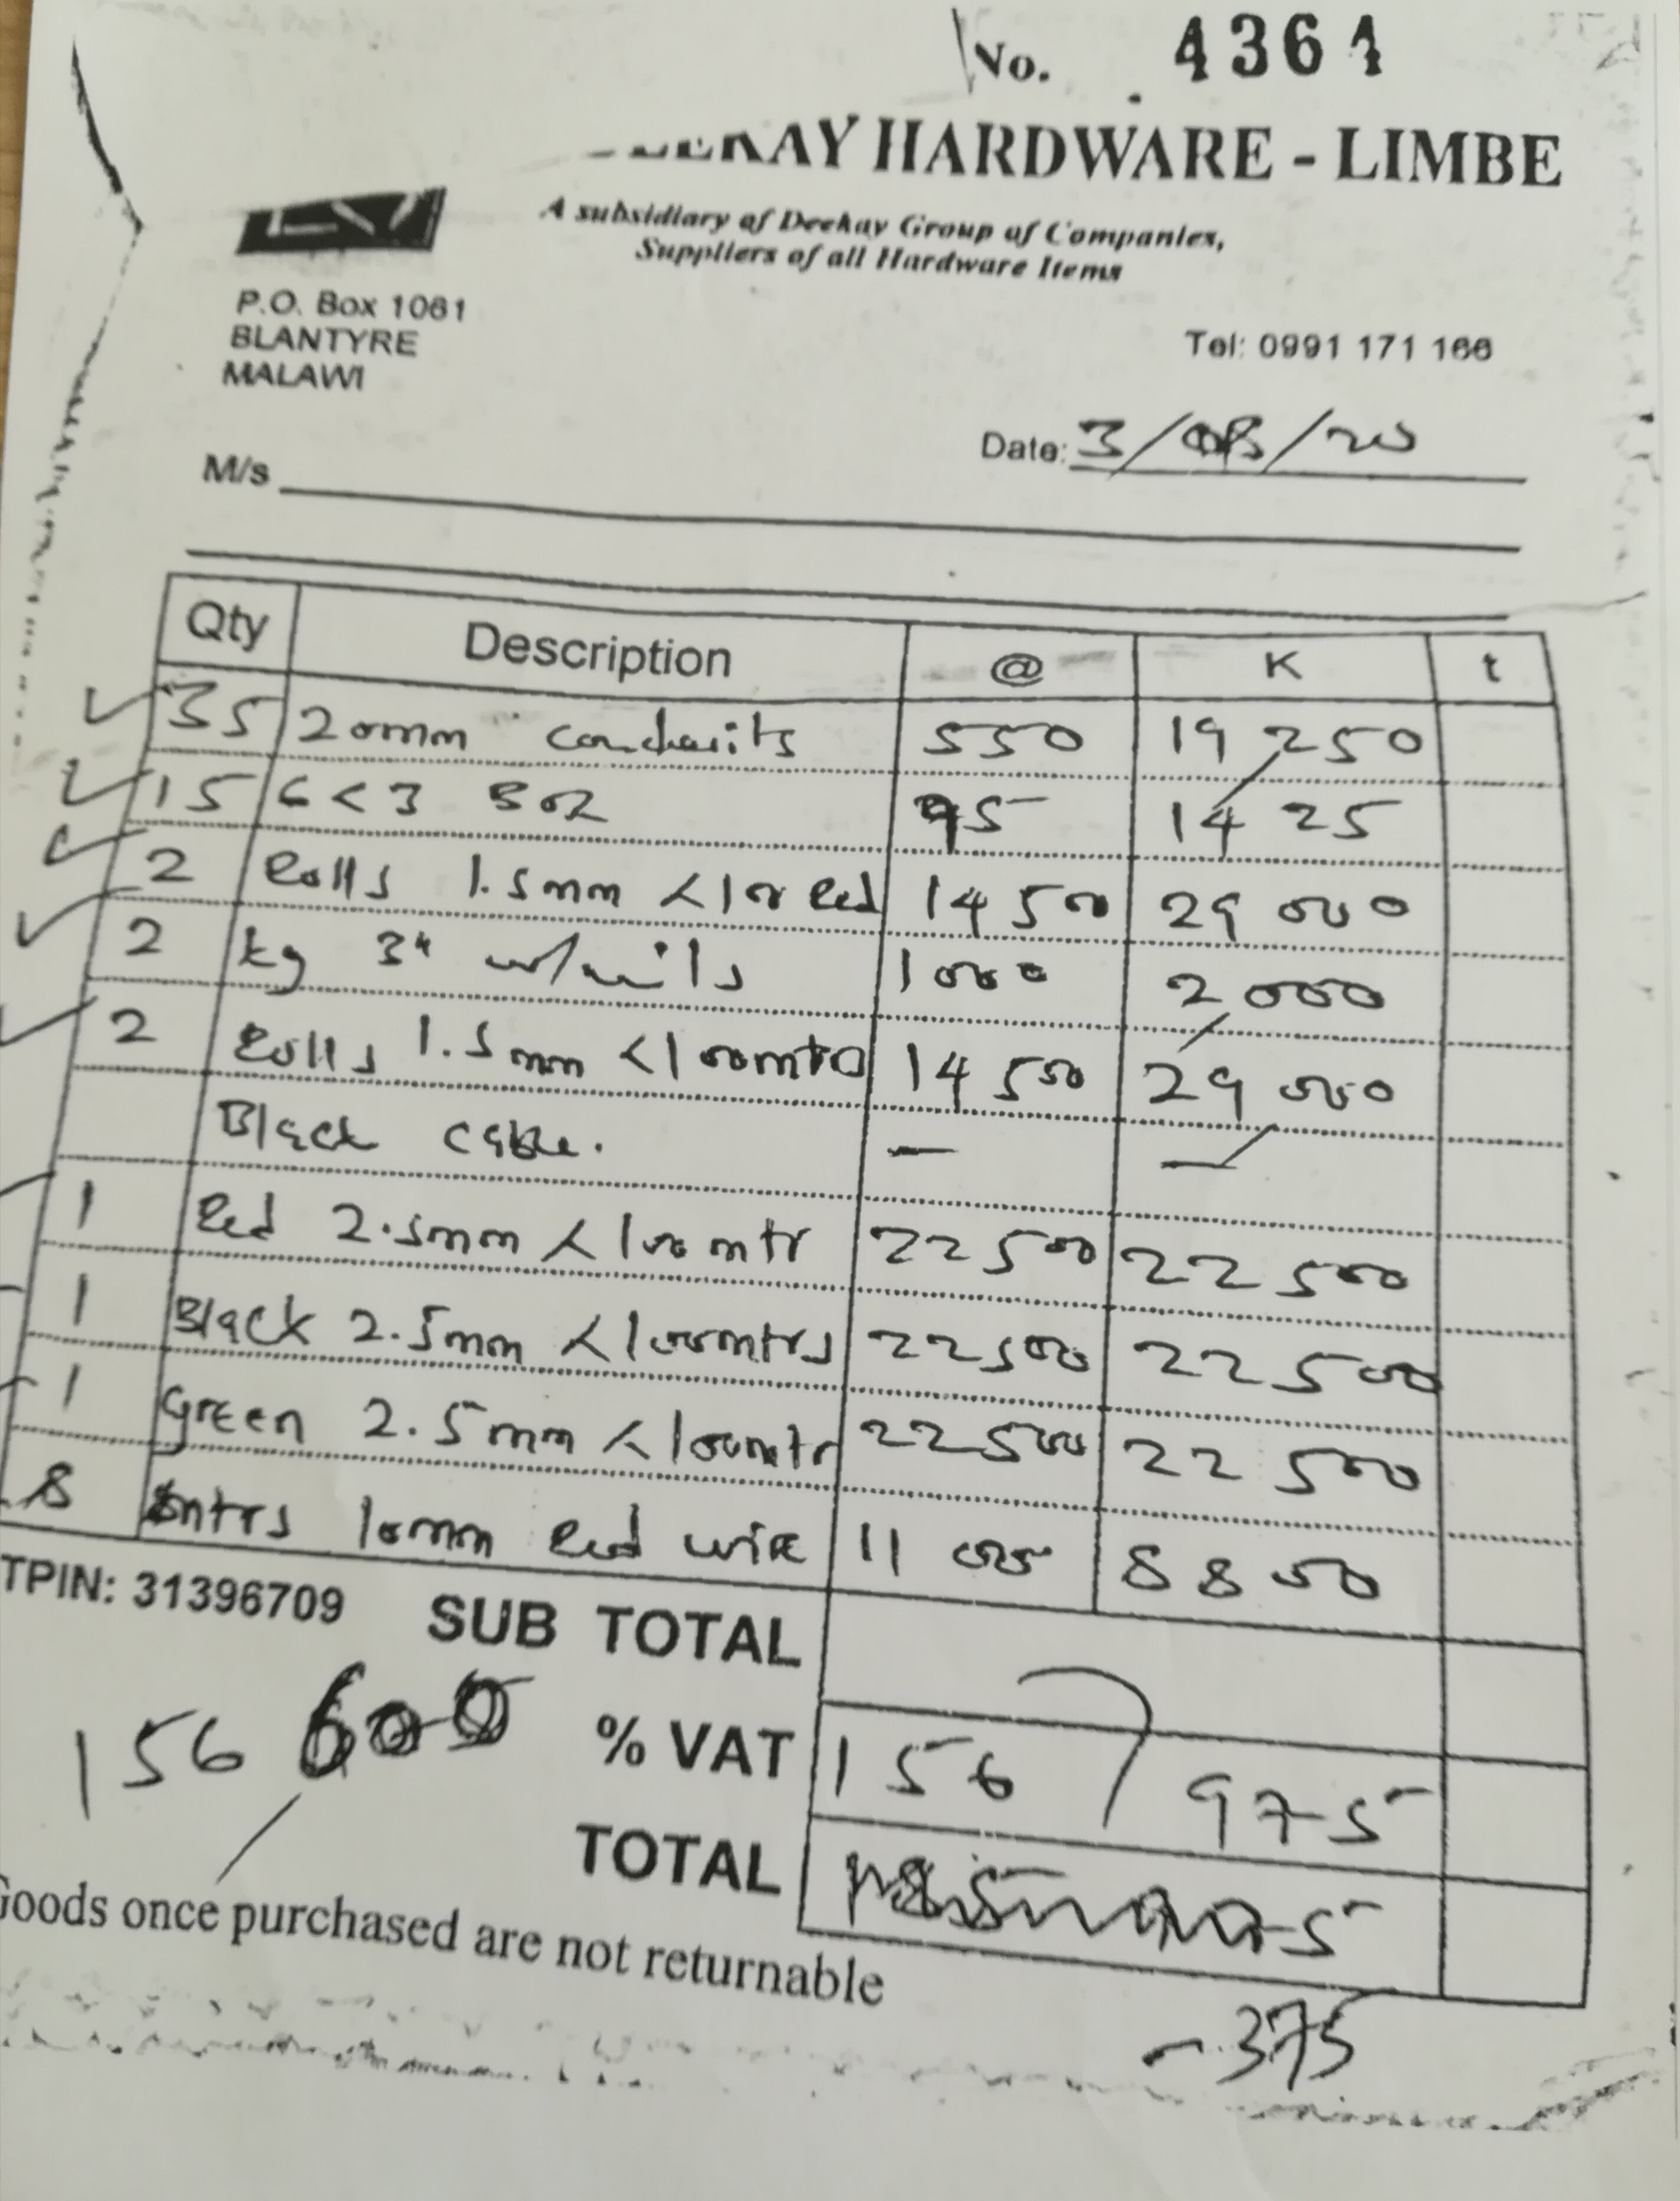 No. 4361
DEEKAY HARDWARE - LIMBE
A subsidiary of Deekay Group of Companies,
Suppliers of all Hardware Items
P.O. Box 1061
BLANTYRE
MALAWI
Tel: 0991 171 166
Date: 3/08/20
M/s
Qty Description @ K t
35 20mm conduits 550 19 250
15 6 x 3 Box 95 14 25
2 Rolls 1.5mm x 100 Red 14 500 29 000
2 kg 3" w/nails 1000 2 000
2 Rolls 1.5mm x 100mtrs 14 500 29 000
Black cable. — —
1 Red 2.5mm x 100mtr 22 500 22 500
1 Black 2.5mm x 100mtrs 22 500 22 500
1 Green 2.5mm x 100mtr 22 500 22 500
8 mtrs 10mm Red wire 11 00 8 800
TPIN: 31396709 SUB TOTAL
156 600 % VAT 156 975
TOTAL
Goods once purchased are not returnable
- 375